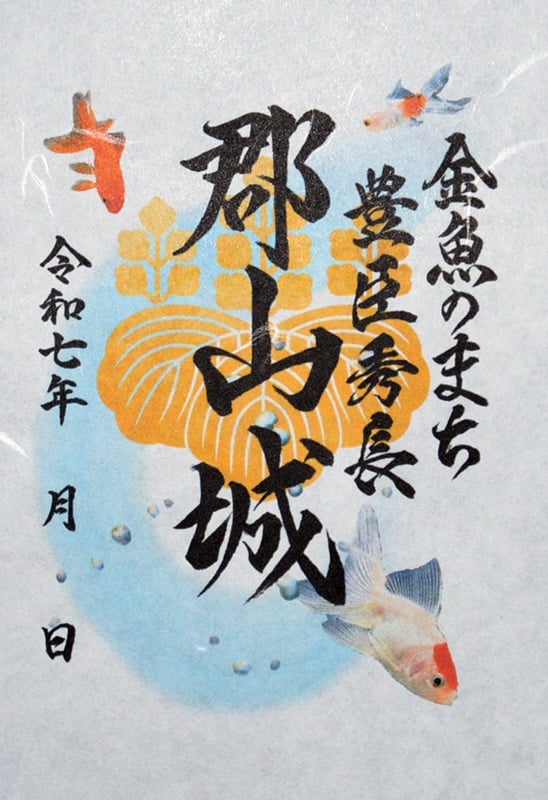 金魚のまち
豊臣秀長
郡山城
令和七年 月 日